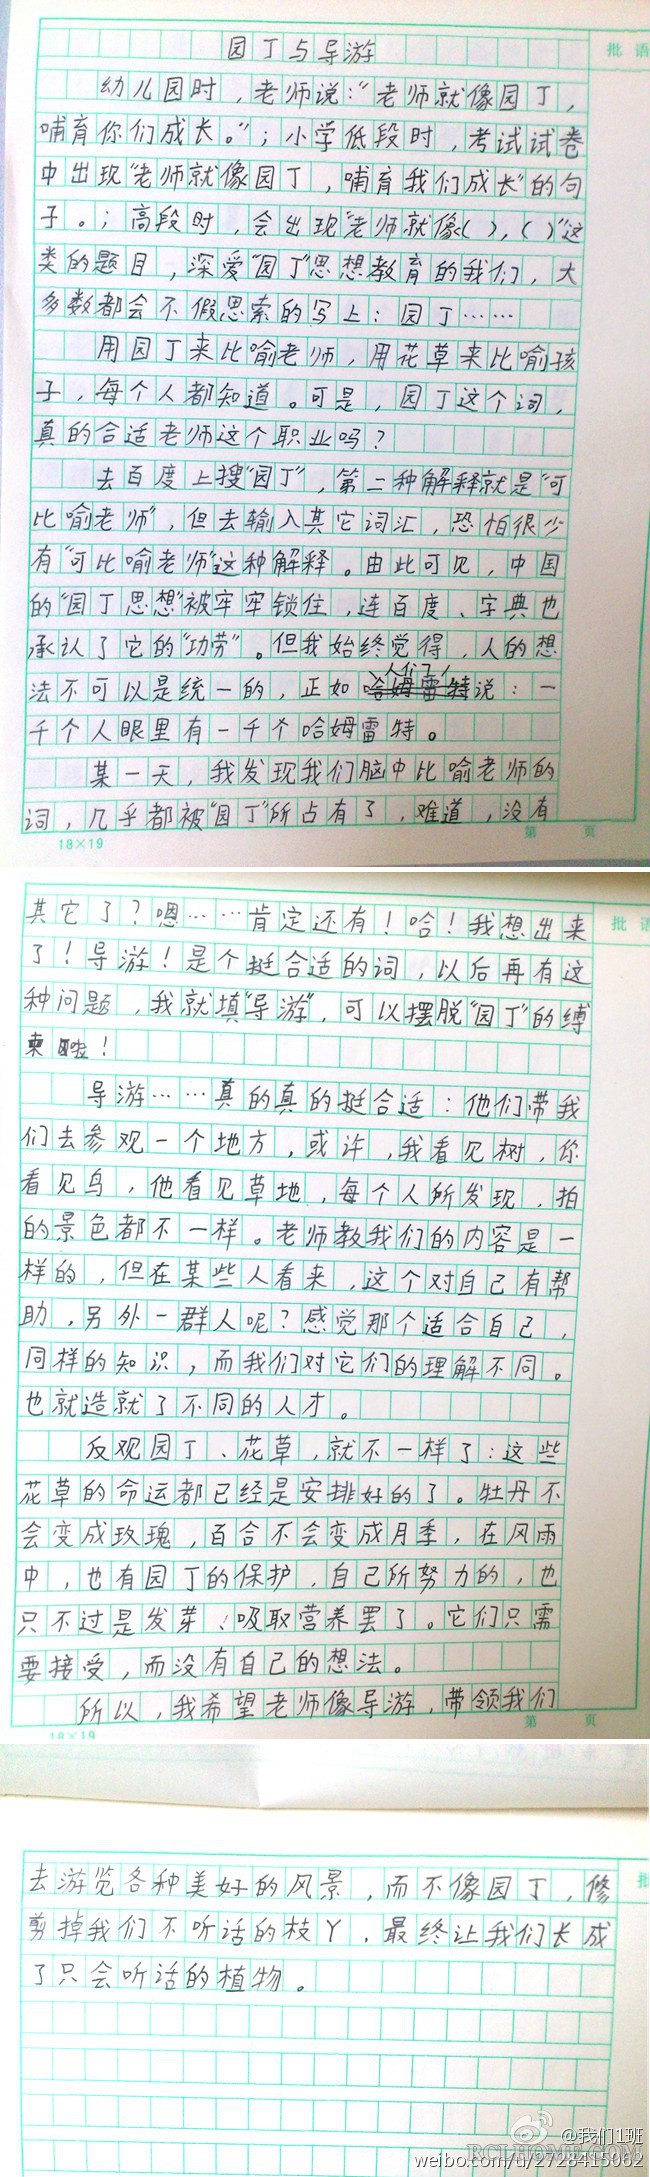 园丁与导游
批语
幼儿园时，老师说：“老师就像园丁，
哺育你们成长。”；小学低段时，考试试卷
中出现“老师就像园丁，哺育我们成长”的句
子。；高段时，会出现“老师就像( )，( )”这
类的题目，深爱“园丁”思想教育的我们，大
多数都会不假思索的写上：园丁……
用园丁来比喻老师，用花草来比喻孩
子，每个人都知道。可是，园丁这个词，
真的合适老师这个职业吗？
去百度上搜“园丁”，第二种解释就是“可
比喻老师”，但去输入其它词汇，恐怕很少
有“可比喻老师”这种解释。由此可见，中国
的“园丁思想”被牢牢锁住，连百度、字典也
承认了它的“功劳”。但我始终觉得，人的想
法不可以是统一的，正如人们说：一
千个人眼里有一千个哈姆雷特。
某一天，我发现我们脑中比喻老师的
词，几乎都被“园丁”所占有了，难道，没有
18×19
第 页
其它了？嗯……肯定还有！哈！我想出来
批语
了！导游！是个挺合适的词，以后再有这
种问题，我就填“导游”，可以摆脱“园丁”的缚
束啦！
导游……真的真的挺合适：他们带我
们去参观一个地方，或许，我看见树，你
看见鸟，他看见草地，每个人所发现、拍
的景色都不一样。老师教我们的内容是一
样的，但在某些人看来，这个对自己有帮
助，另外一群人呢？感觉那个适合自己，
同样的知识，而我们对它们的理解不同。
也就造就了不同的人才。
反观园丁、花草，就不一样了：这些
花草的命运都已经是安排好的了。牡丹不
会变成玫瑰，百合不会变成月季，在风雨
中，也有园丁的保护，自己所努力的，也
只不过是发芽、吸取营养罢了。它们只需
要接受，而没有自己的想法。
所以，我希望老师像导游，带领我们
18×19
第 页
去游览各种美好的风景，而不像园丁，修
批
剪掉我们不听话的枝丫，最终让我们长成
了只会听话的植物。
@我们1班
weibo.com/u/2728415062
RCLHOME.COM